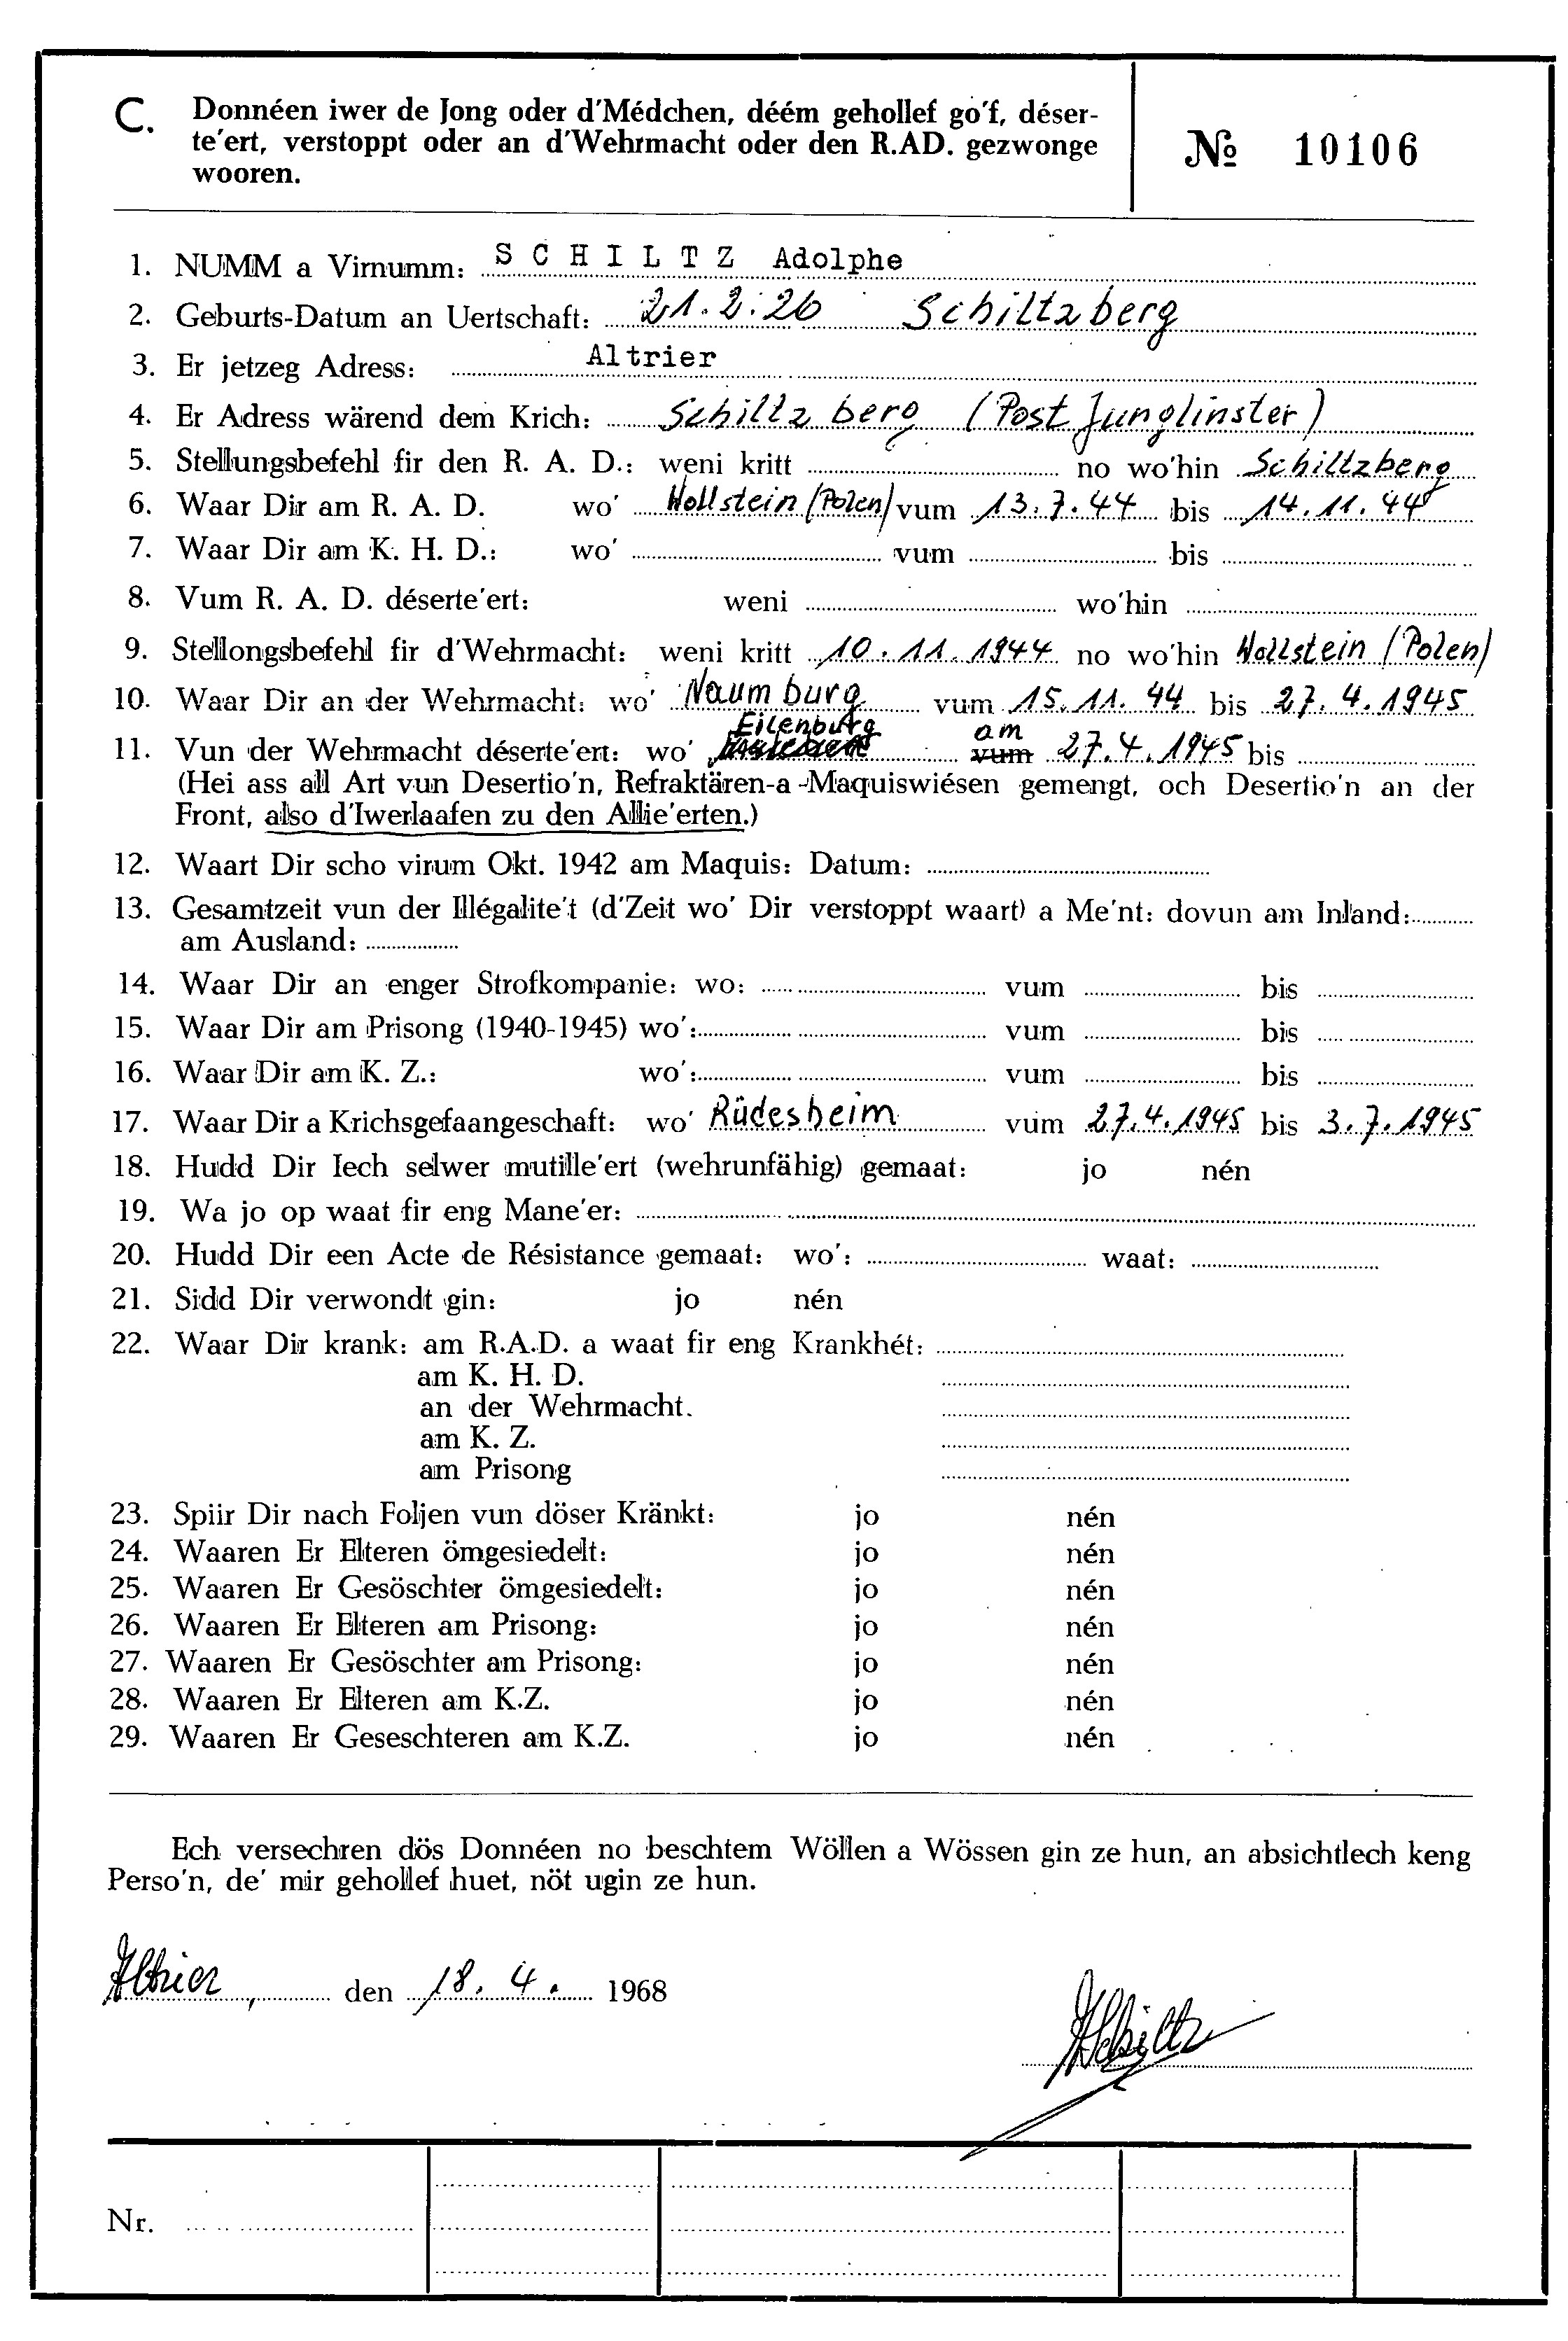 C. Donnéen iwer de Jong oder d'Médchen, déém gehollef go'f, déser-
te'ert, verstoppt oder an d'Wehrmacht oder den R.AD. gezwonge
wooren.
№ 10106
1. NUMM a Virnumm: SCHILTZ Adolphe
2. Geburts-Datum an Uertschaft: 21.2.26 Schiltzberg
3. Er jetzeg Adress: Altrier
4. Er Adress wärend dem Krich: Schiltzberg (Post Junglinster)
5. Stellungsbefehl fir den R. A. D.: weni kritt no wo'hin Schiltzberg
6. Waar Dir am R. A. D. wo' Wollstein (Polen) vum 13.7.44 bis 14.11.44
7. Waar Dir am K. H. D.: wo' vum bis
8. Vum R. A. D. déserte'ert: weni wo'hin
9. Stellongsbefehl fir d'Wehrmacht: weni kritt 10.11.1944 no wo'hin Wollstein (Polen)
10. Waar Dir an der Wehrmacht: wo' Naumburg vum 15.11.44 bis 27.4.1945
11. Vun der Wehrmacht déserte'ert: wo' Eilenburg vum am 27.4.1945 bis
(Hei ass all Art vun Desertio'n, Refraktären-a-Maquiswiésen gemengt, och Desertio'n an der
Front, also d'Iwerlaafen zu den Allie'erten.)
12. Waart Dir scho virum Okt. 1942 am Maquis: Datum:
13. Gesamtzeit vun der Illégalite't (d'Zeit wo' Dir verstoppt waart) a Me'nt: dovun am Inland:
am Ausland:
14. Waar Dir an enger Strofkompanie: wo: vum bis
15. Waar Dir am Prisong (1940-1945) wo': vum bis
16. Waar Dir am K. Z.: wo': vum bis
17. Waar Dir a Krichsgefaangeschaft: wo' Rüdesheim vum 27.4.1945 bis 3.7.1945
18. Hudd Dir Iech selwer mutille'ert (wehrunfähig) gemaat: jo nén
19. Wa jo op waat fir eng Mane'er:
20. Hudd Dir een Acte de Résistance gemaat: wo': waat:
21. Sidd Dir verwondt gin: jo nén
22. Waar Dir krank: am R.A.D. a waat fir eng Krankhét:
am K. H. D.
an der Wehrmacht.
am K. Z.
am Prisong
23. Spiir Dir nach Foljen vun döser Kränkt: jo nén
24. Waaren Er Elteren ömgesiedelt: jo nén
25. Waaren Er Gesöschter ömgesiedelt: jo nén
26. Waaren Er Elteren am Prisong: jo nén
27. Waaren Er Gesöschter am Prisong: jo nén
28. Waaren Er Elteren am K.Z. jo nén
29. Waaren Er Geseschteren am K.Z. jo nén
Ech versechren dös Donnéen no beschtem Wöllen a Wössen gin ze hun, an absichtlech keng
Perso'n, de' mir gehollef huet, nöt ugin ze hun.
Altrier, den 18. 4. 1968
ASchiltz
Nr.